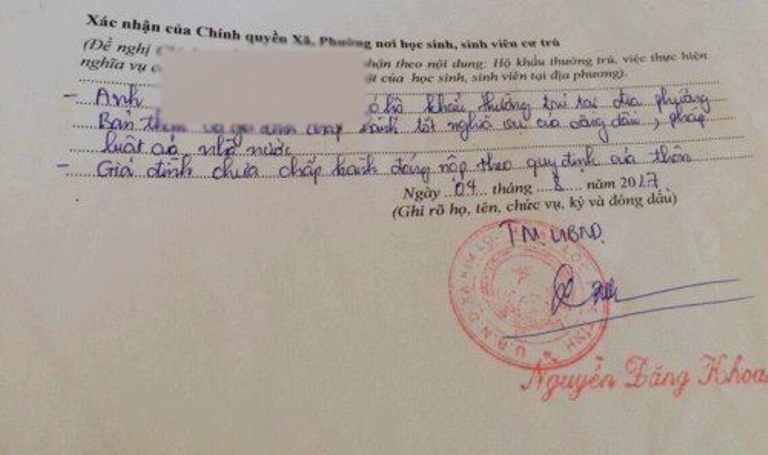 Xác nhận của Chính quyền Xã, Phường nơi học sinh, sinh viên cư trú
(Đề nghị nhận theo nội dung: Hộ khẩu thường trú, việc thực hiện
nghĩa vụ của học sinh, sinh viên tại địa phương).
- Anh có hộ khẩu thường trú tại địa phương
Bản thân và gia đình chấp hành tốt nghĩa vụ của công dân, pháp
luật của nhà nước
- Gia đình chưa chấp hành đóng nộp theo quy định của thôn
Ngày 04 tháng 8 năm 2017
(Ghi rõ họ, tên, chức vụ, ký và đóng dấu)
TM. UBND.
U.B.N.D XÃ KIM LỘC
TĨNH
Nguyễn Đăng Khoa